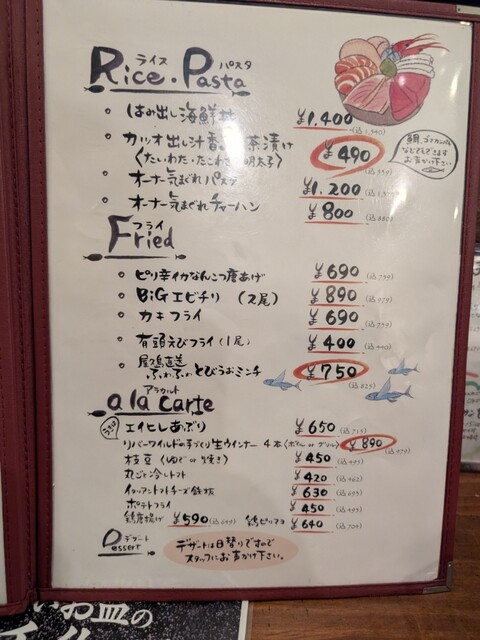 ライス パスタ
Rice・Pasta
はみ出し海鮮丼 ¥1,400
カツオ出し汁香る茶漬け ¥490
〈たい・わた・たこわさ・明太子〉
鯛、ゴマカンパチ
などもできます
お声かけ下さい
オーナー気まぐれパスタ ¥1,200
オーナー気まぐれチャーハン ¥800 (込880)
フライ
Fried
ピリ辛イカなんこつ唐あげ ¥690 (込759)
BiGエビチリ (2尾) ¥890 (込979)
カキフライ ¥690 (込759)
有頭えびフライ(1尾) ¥400 (込440)
屋久島直送
ふわふわとびうおミンチ ¥750 (込825)
アラカルト
a la carte
エイヒレあぶり ¥650 (込715)
リバーワイルドの手づくり生ウインナー 4本〈ボイル or グリル〉 ¥890 (込979)
枝豆 (ゆで or 焼き) ¥450 (込495)
丸ごと冷しトマト ¥420 (込462)
イタリアントマトチーズ鉄板 ¥630 (込693)
ポテトフライ ¥450 (込495)
鶏唐揚げ ¥590 (込649) 鶏ピリマヨ ¥640 (込704)
デザート
Dessert
デザートは日替りですので
スタッフにお声かけ下さい。
いお皿の